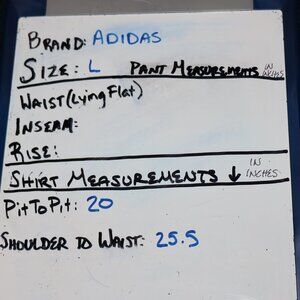 BRAND: ADIDAS
SIZE: L PANT MEASUREMENTS IN INCHES
WAIST (Lying Flat)
INSEAM:
RISE:
SHIRT MEASUREMENTS ↓ IN INCHES
PitToPit: 20
SHOULDER TO WAIST: 25.5